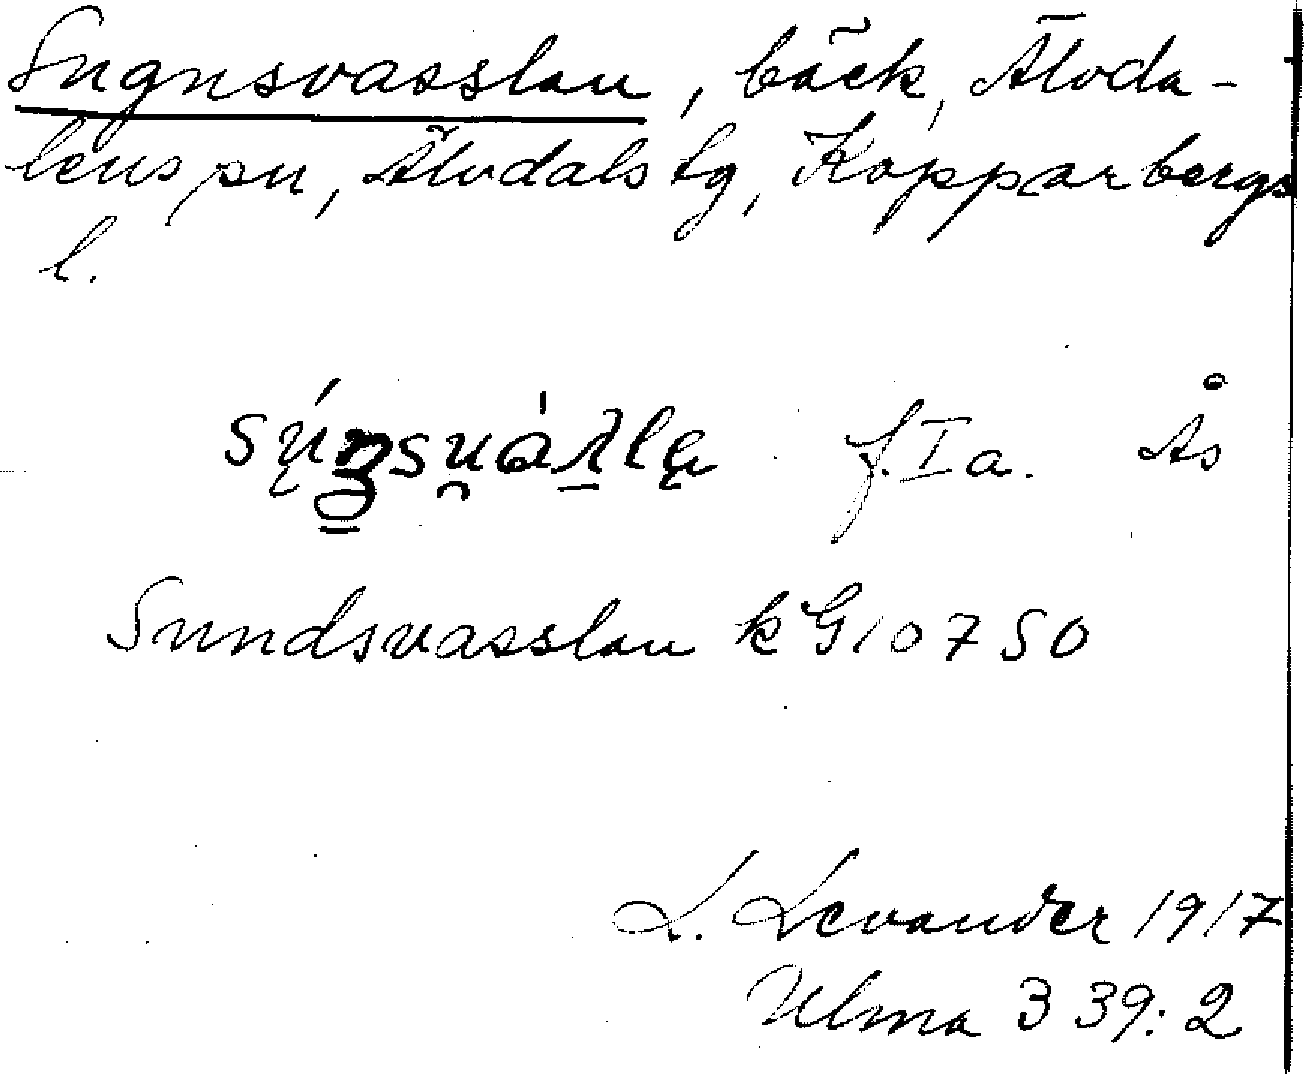 Sugnsvasslan, bäck, Älvda-
lens sn, Älvdals tg, Kopparbergs
l.
f. I a. Ås
Sundsvasslan k G 10750
L. Levander 1917
Ulma 339:2